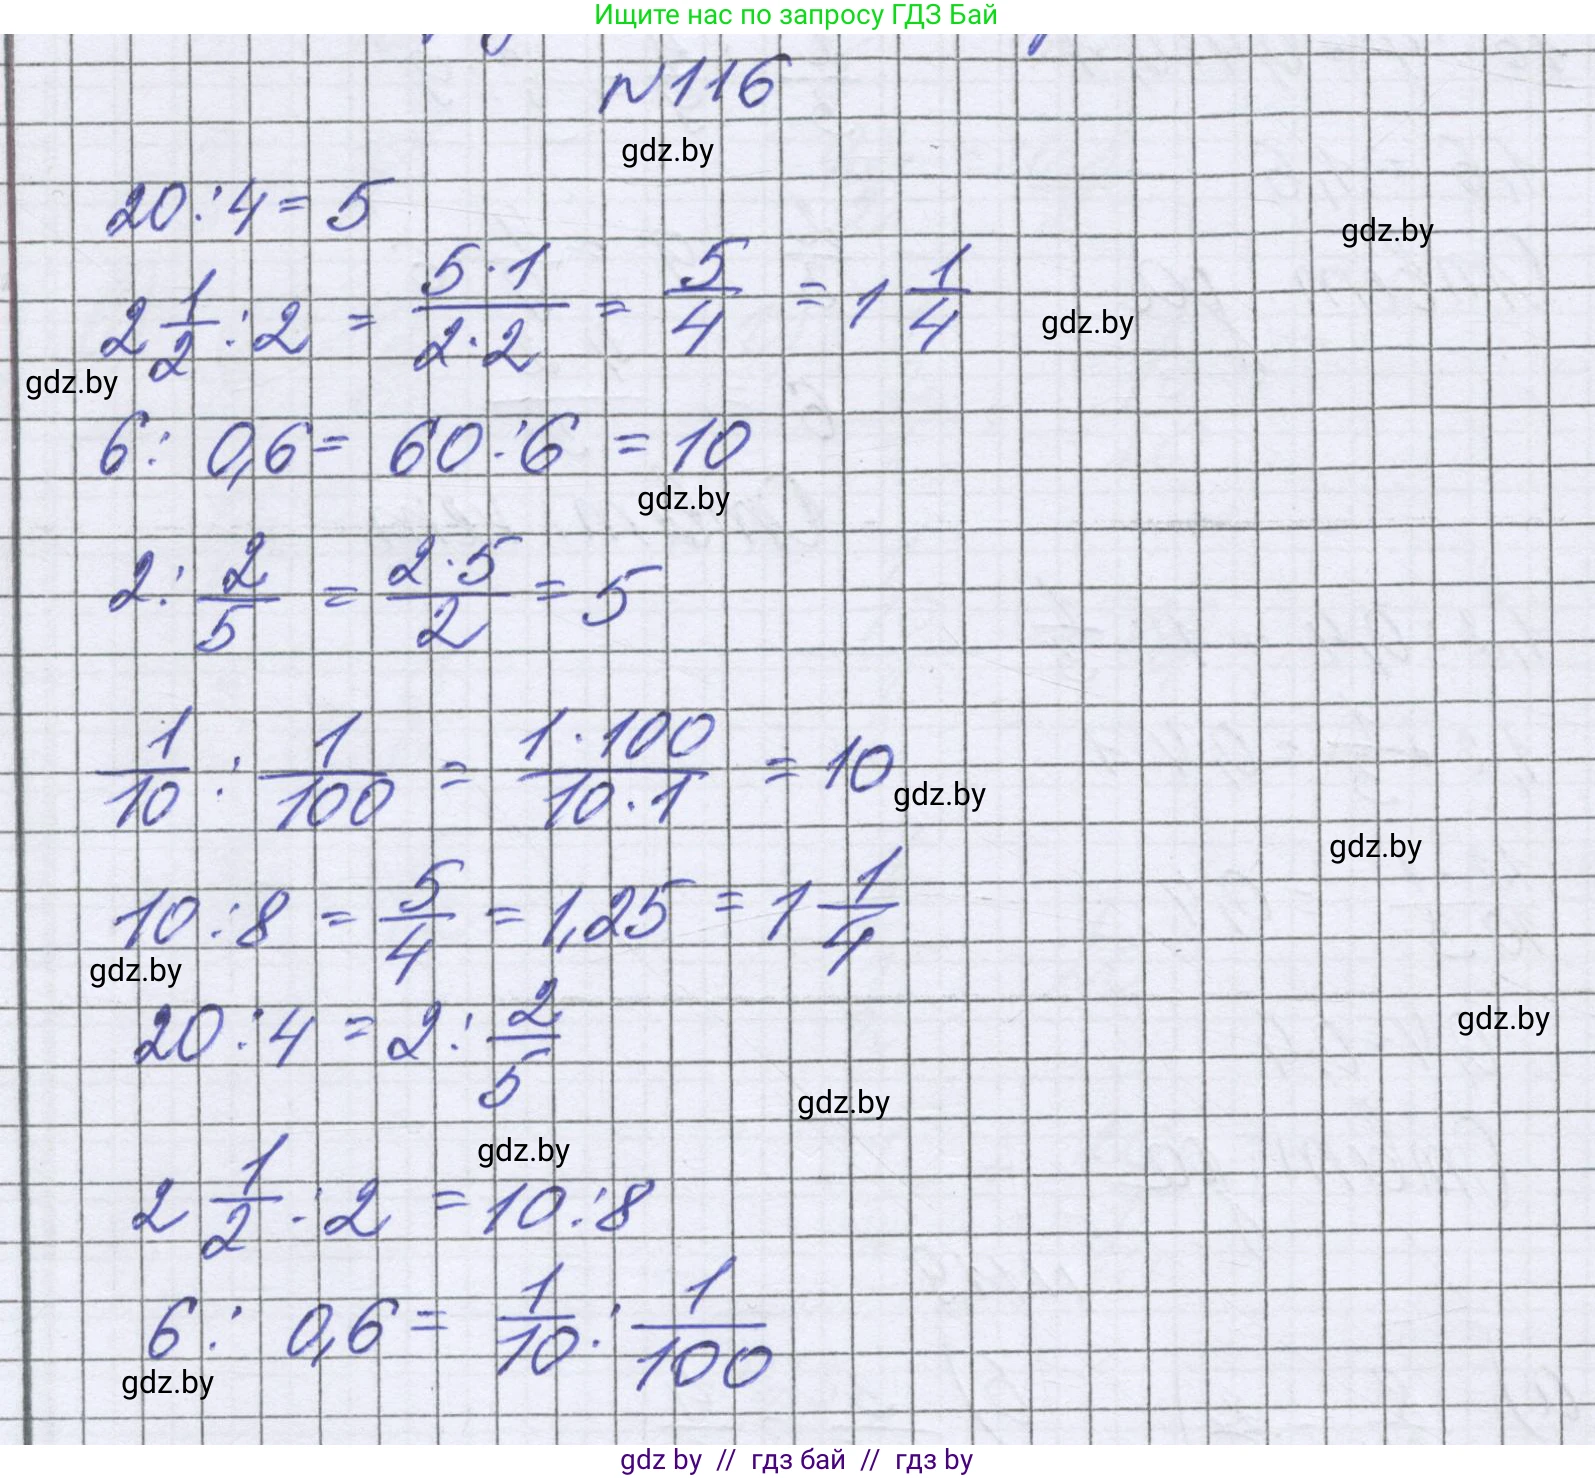 Ищите нас по запросу ГДЗ Бай
N116
gdz.by
20 : 4 = 5
gdz.by
2 1/2 : 2 = 5·1/2·2 = 5/4 = 1 1/4
gdz.by
gdz.by
6 : 0,6 = 60 : 6 = 10
gdz.by
2 : 2/5 = 2·5/2 = 5
1/10 : 1/100 = 1·100/10·1 = 10
gdz.by
gdz.by
10 : 8 = 5/4 = 1,25 = 1 1/4
gdz.by
20 : 4 = 2 : 2/5
gdz.by
gdz.by
gdz.by
2 1/2 : 2 = 10 : 8
6 : 0,6 = 1/10 : 1/100
gdz.by
gdz by // гдз бай // гдз by